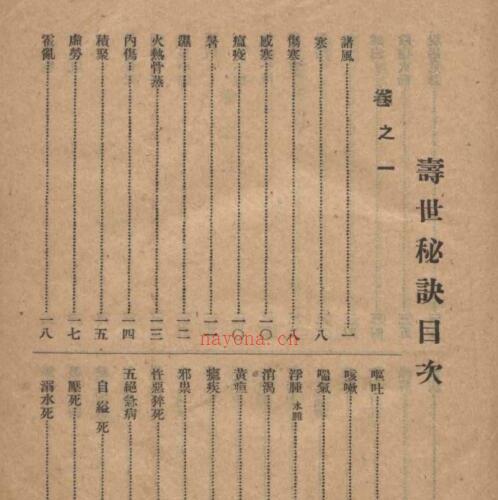 壽世秘訣目次
卷之一
諸風 一
寒 八
傷寒 八
感寒 一〇
瘟疫 一〇
暑 一一
濕 一二
火熱骨蒸 一三
內傷 一四
積聚 一五
虛勞 一七
霍亂 一八
嘔吐
咳嗽
喘氣
浮腫 水腫
消渴
黃疸
瘧疾
邪祟
忤惡猝死
五絕急病
自縊死
壓死
溺水死
nayona.cn